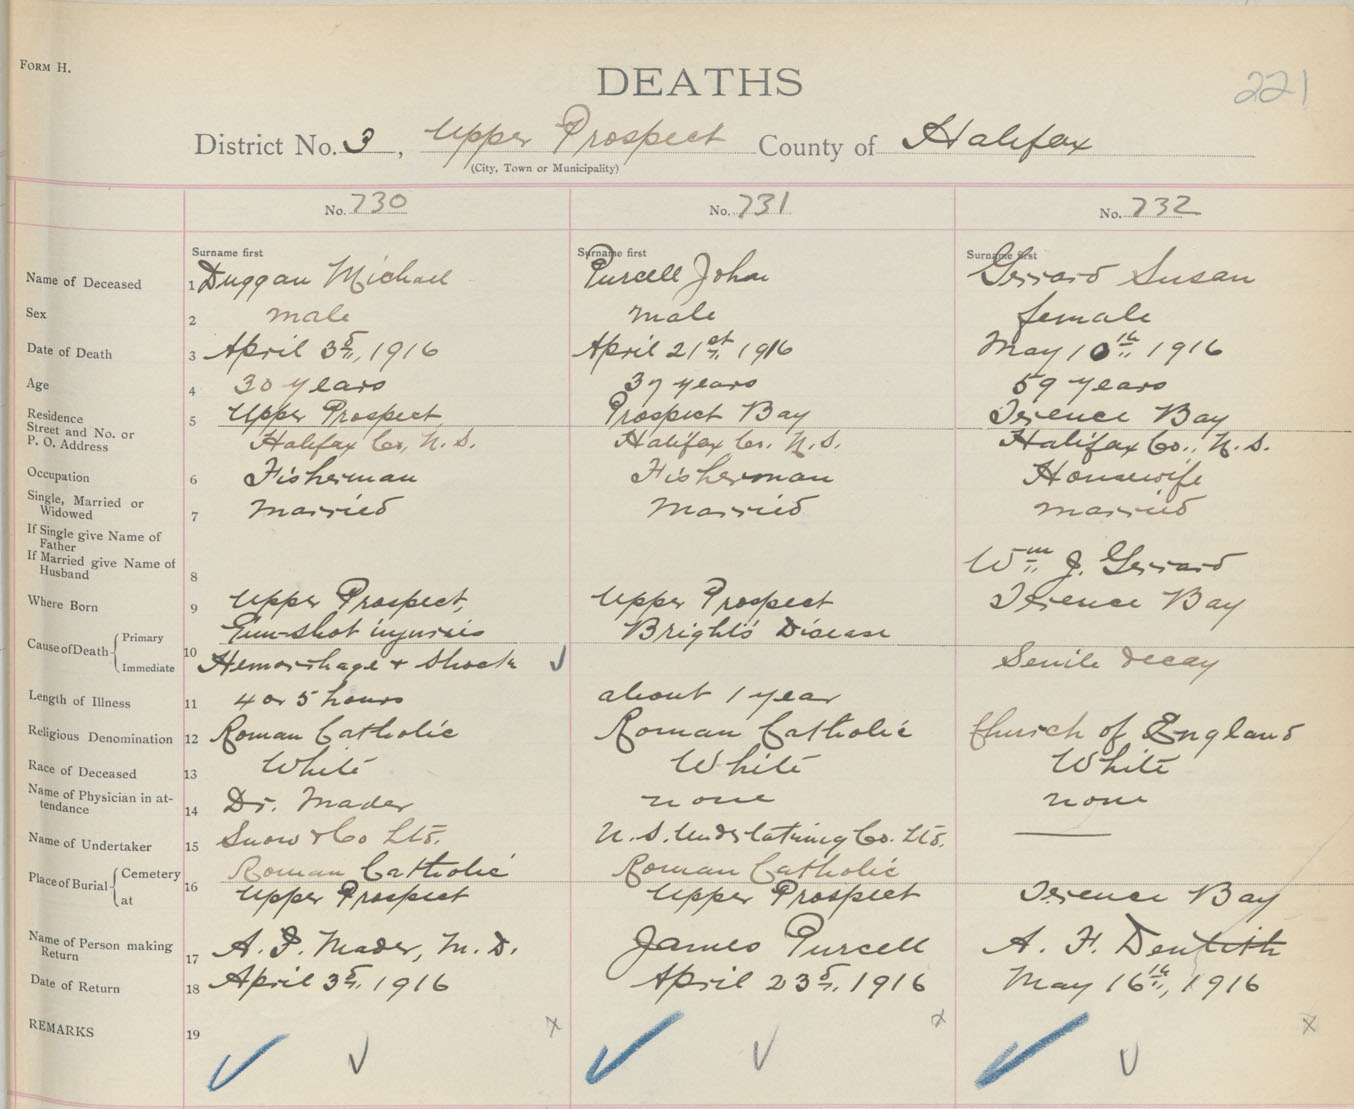 FORM H.
DEATHS
221
District No. 3, Upper Prospect County of Halifax
(City, Town or Municipality)
No. 730 No. 731 No. 732
Surname first Surname first Surname first
Name of Deceased 1 Duggan Michael Purcell John Gerrard Susan
Sex 2 male male female
Date of Death 3 April 3rd, 1916 April 21st, 1916 May 10th 1916
Age 4 30 years 37 years 59 years
Residence
Street and No. or 5 Upper Prospect, Prospect Bay Terence Bay
P. O. Address Halifax Co, N. S. Halifax Co. N. S. Halifax Co., N. S.
Occupation 6 Fisherman Fisherman Housewife
Single, Married or
Widowed 7 married married married
If Single give Name of
Father
If Married give Name of Wm J. Gerrard
Husband 8
Where Born 9 Upper Prospect, Upper Prospect Terence Bay
Cause of Death Primary Gun-shot injuries Bright's Disease
10 Immediate Hemorrhage + Shock Senile decay
Length of Illness 11 4 or 5 hours about 1 year
Religious Denomination 12 Roman Catholic Roman Catholic Church of England
Race of Deceased 13 White White White
Name of Physician in at-
tendance 14 Dr. Mader none none
Name of Undertaker 15 Snow & Co Ltd. N. S. Undertaking Co. Ltd.
Place of Burial Cemetery 16 Roman Catholic Roman Catholic
at Upper Prospect Upper Prospect Terence Bay
Name of Person making
Return 17 A. F. Mader, M. D. James Purcell A. H. Dentith
Date of Return 18 April 3rd, 1916 April 23rd, 1916 May 16th, 1916
REMARKS 19 x x x